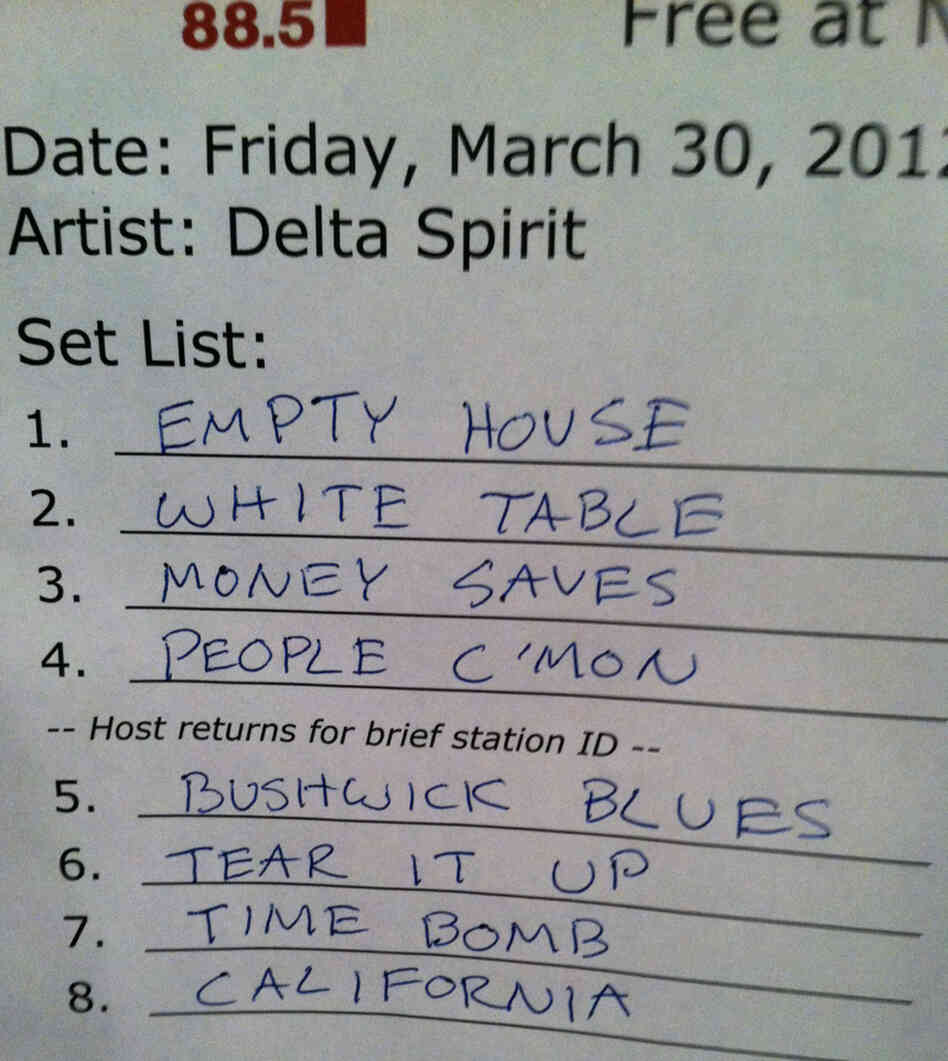 88.5
Free at
Date: Friday, March 30, 201
Artist: Delta Spirit
Set List:
1. EMPTY HOUSE
2. WHITE TABLE
3. MONEY SAVES
4. PEOPLE C'MON
-- Host returns for brief station ID --
5. BUSHWICK BLUES
6. TEAR IT UP
7. TIME BOMB
8. CALIFORNIA